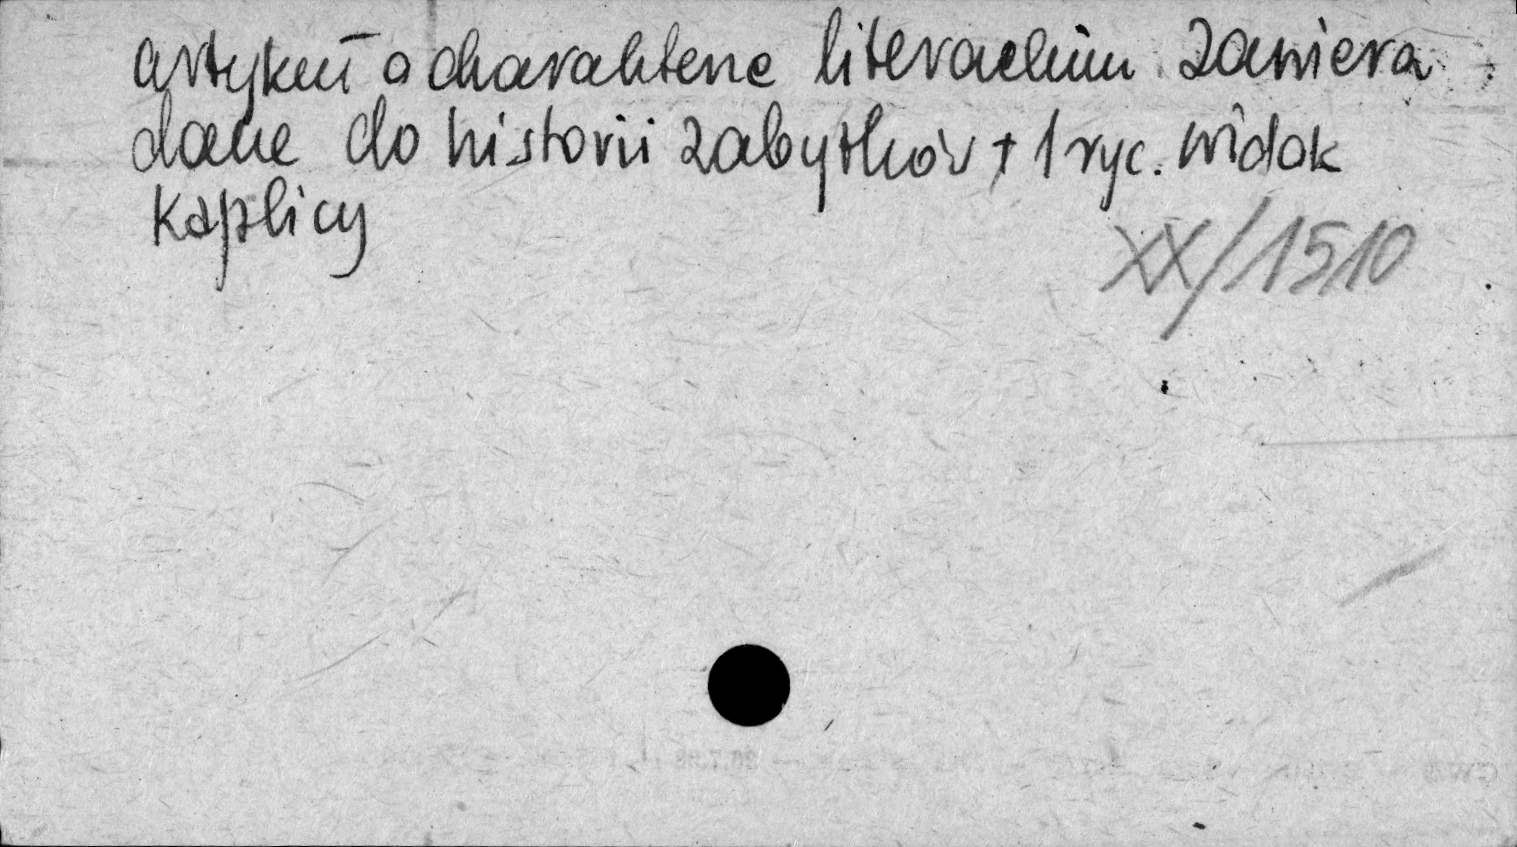 artykuł o charakterze literackim zawiera
dane do historii zabytków + 1 ryc. widok
kaplicy
XX/1510